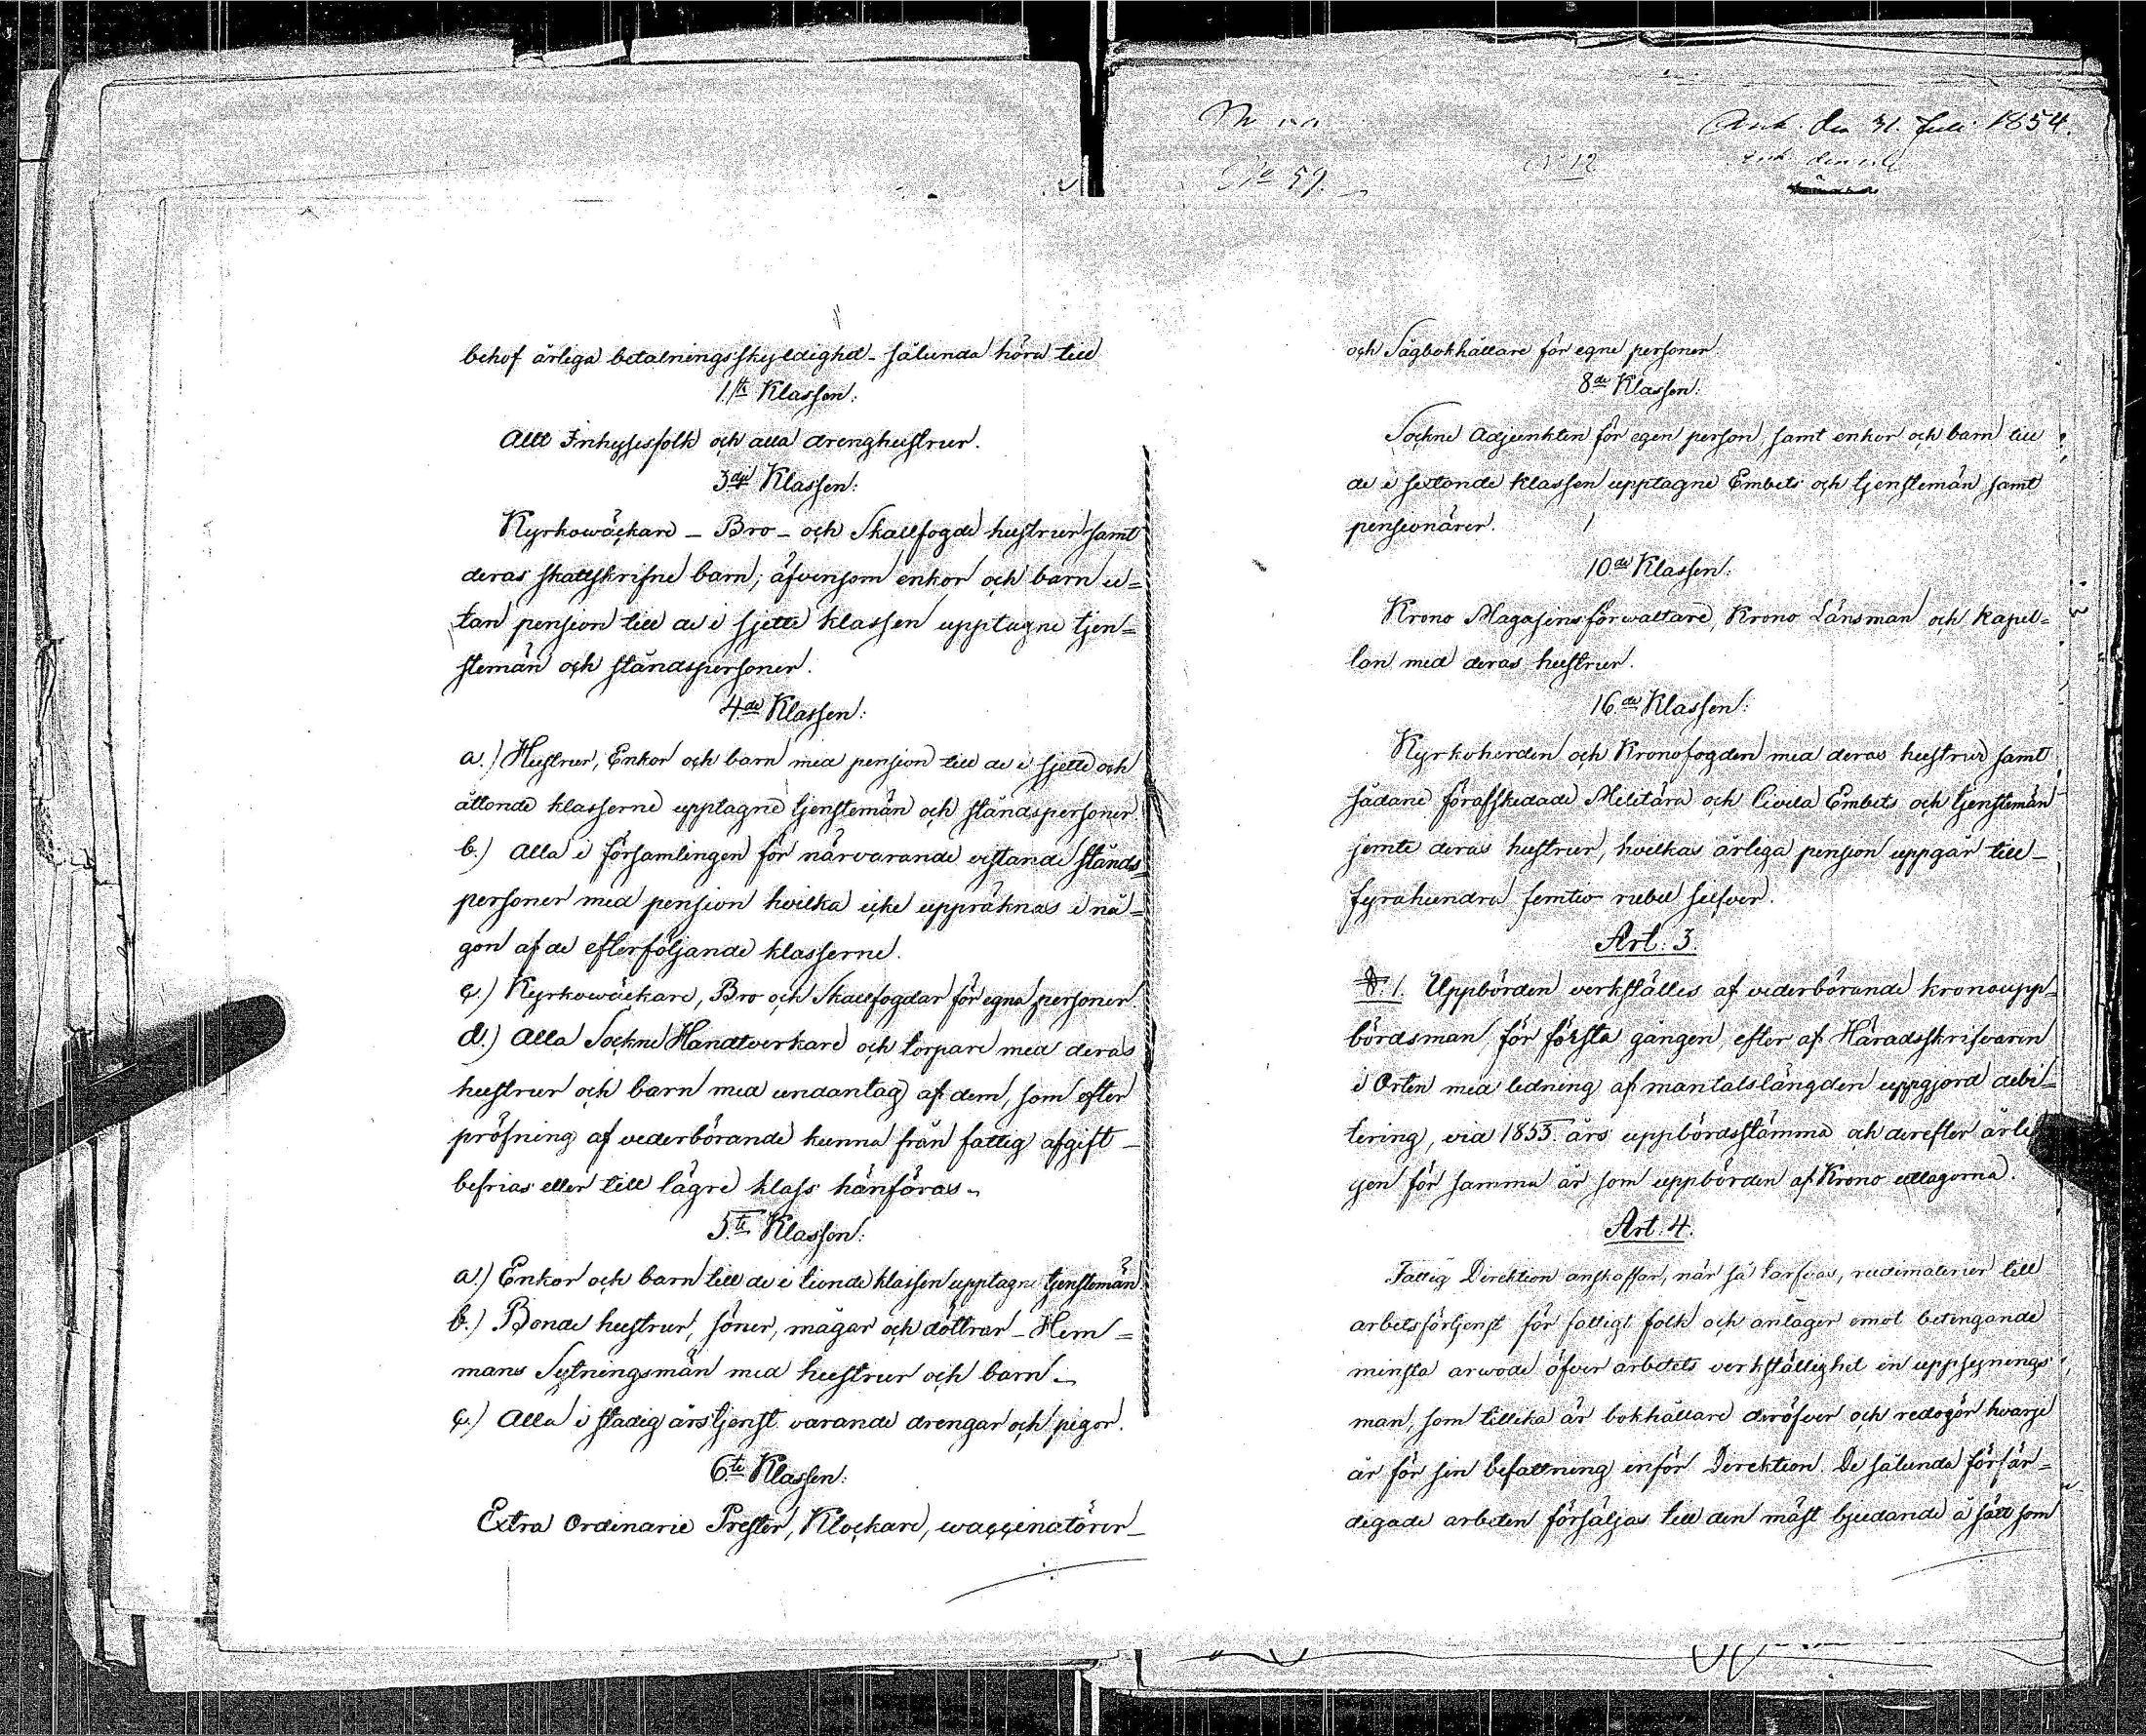 behof årliga betalningsskyldighet - sålunda höra till
1.sta Klassen:
Allt Inhysesfolk och alla drenghustrur.
3.dje Klassen:
Kyrkowäckare - Bro - och Skallfogde hustrur samt
deras skattskrifne barn; äfvensom enkor och barn u=
tan pension till de i sjette klassen upptagne tjen=
stemän och ståndspersoner.
4.de Klassen:
a.) Hustrur, Enkor och barn med pension till de i sjette och
åttonde klasserne upptagne tjenstemän och ståndspersoner
b.) Alla i församlingen för närvarande vistande stånds=
personer med pension hvilka icke uppräknas i nå=
gon af de efterföljande klasserne.
c.) Kyrkowäckare, Bro och Skallfogdar för egna personer
d.) Alla Sockne Handtverkare och torpare med deras
hustrur och barn med undantag af dem, som efter
pröfning af vederbörande kunna från fattig afgift -
befrias eller till lägre klass hänföras -
5.te Klassen:
a.) Enkor och barn till de i tionde klassen upptagne tjenstemän
b.) Bonde hustrur, söner, mågar och döttrar - Hem=
mans Sytningsmän med hustrur och barn -
c.) Alla i stadig årstjenst varande drengar och pigor.
6.te Klassen:
Extra Ordinarie Prester, Klockare, waccinatörer -
Ank. den 31. Juli 1854.
No 59.
No 12
och Sågbokhållare för egne personer.
8.de Klassen:
Sockne Adjunkten för egen person, samt enkor och barn till
de i sextonde klassen upptagne Embets och tjenstemän samt
pensionärer.
10.de Klassen:
Krono Magasinsförvaltare, Krono Länsman och Kapel=
lan med deras hustrur.
16.de Klassen:
Kyrkoherden och Kronofogden med deras hustrur samt
sådane förafskedade Militära och Civila Embets och tjenstemän
jemte deras hustrur, hvilkas årliga pension uppgår till -
fyrahundra femtio rubel silfver.
Art: 3.
§. 1. Uppbörden verkställes af vederbörande kronoupp=
bördsman för första gången, efter af Häradsskrifvaren
i Orten med ledning af mantalslängden uppgjord debi=
tering, vid 1855. års uppbördsstämma och derefter årli
gen för samma år som uppbörden af Krono utlagorna.
Art. 4.
Fattig Direktion anskaffar, när så tarfvas, rudimaterier till
arbetsförtjenst för fattigt folk och antager emot betingande
minsta arwode öfver arbetets verkställighet en uppsynings
man, som tillika är bokhållare deröfver och redogör hvarje
år för sin befattning inför Direktion. De sålunda förfär=
digade arbeten försäljas till den mäst bjudande å sätt som